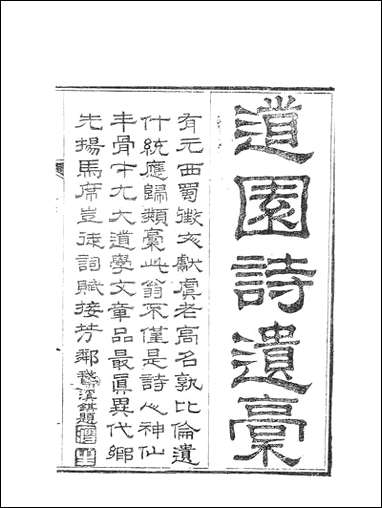 道園詩遺稾
有元西蜀徵文獻虞老高名孰比倫遺
什統應歸類稾此翁不僅是詩人神仙
丰骨才尤大道學文章品最眞異代鄉
先揚馬席豈徒詞賦接芳鄰 溪 題